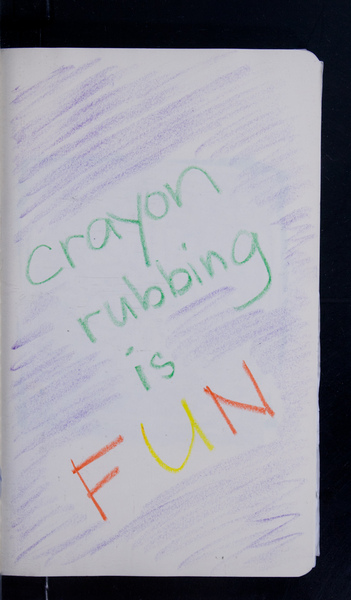 crayon
rubbing
is
FUN